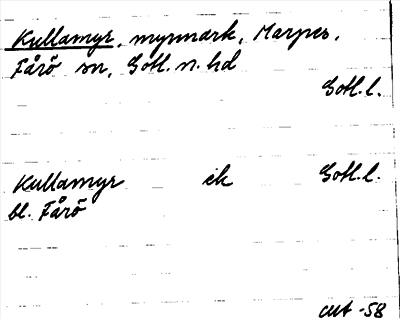 Kullamyr, myrmark, Marpes,
Fårö sn, Gotl. n. hd
Gotl. l.
Kullamyr ek Gotl. l.
bl. Fårö
-58